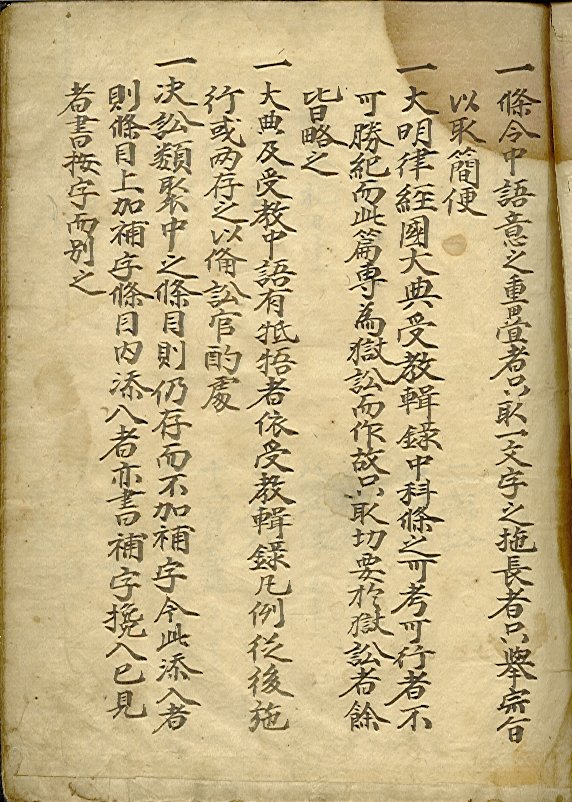 一條令中語意之重疊者只取一文字之拖長者只擧宗旨
以取簡便
一大明律經國大典受敎輯錄中科條之可考可行者不
可勝紀而此篇專為獄訟而作故只取切要於獄訟者餘
皆略之
一大典及受敎中語有抵牾者依受敎輯錄凡例從後施
行或兩存之以俻訟官酌處
一决訟類聚中之條目則仍存而不加補字今此添入者
則條目上加補字條目內添入者亦書補字攙入已見
者書按字而別之